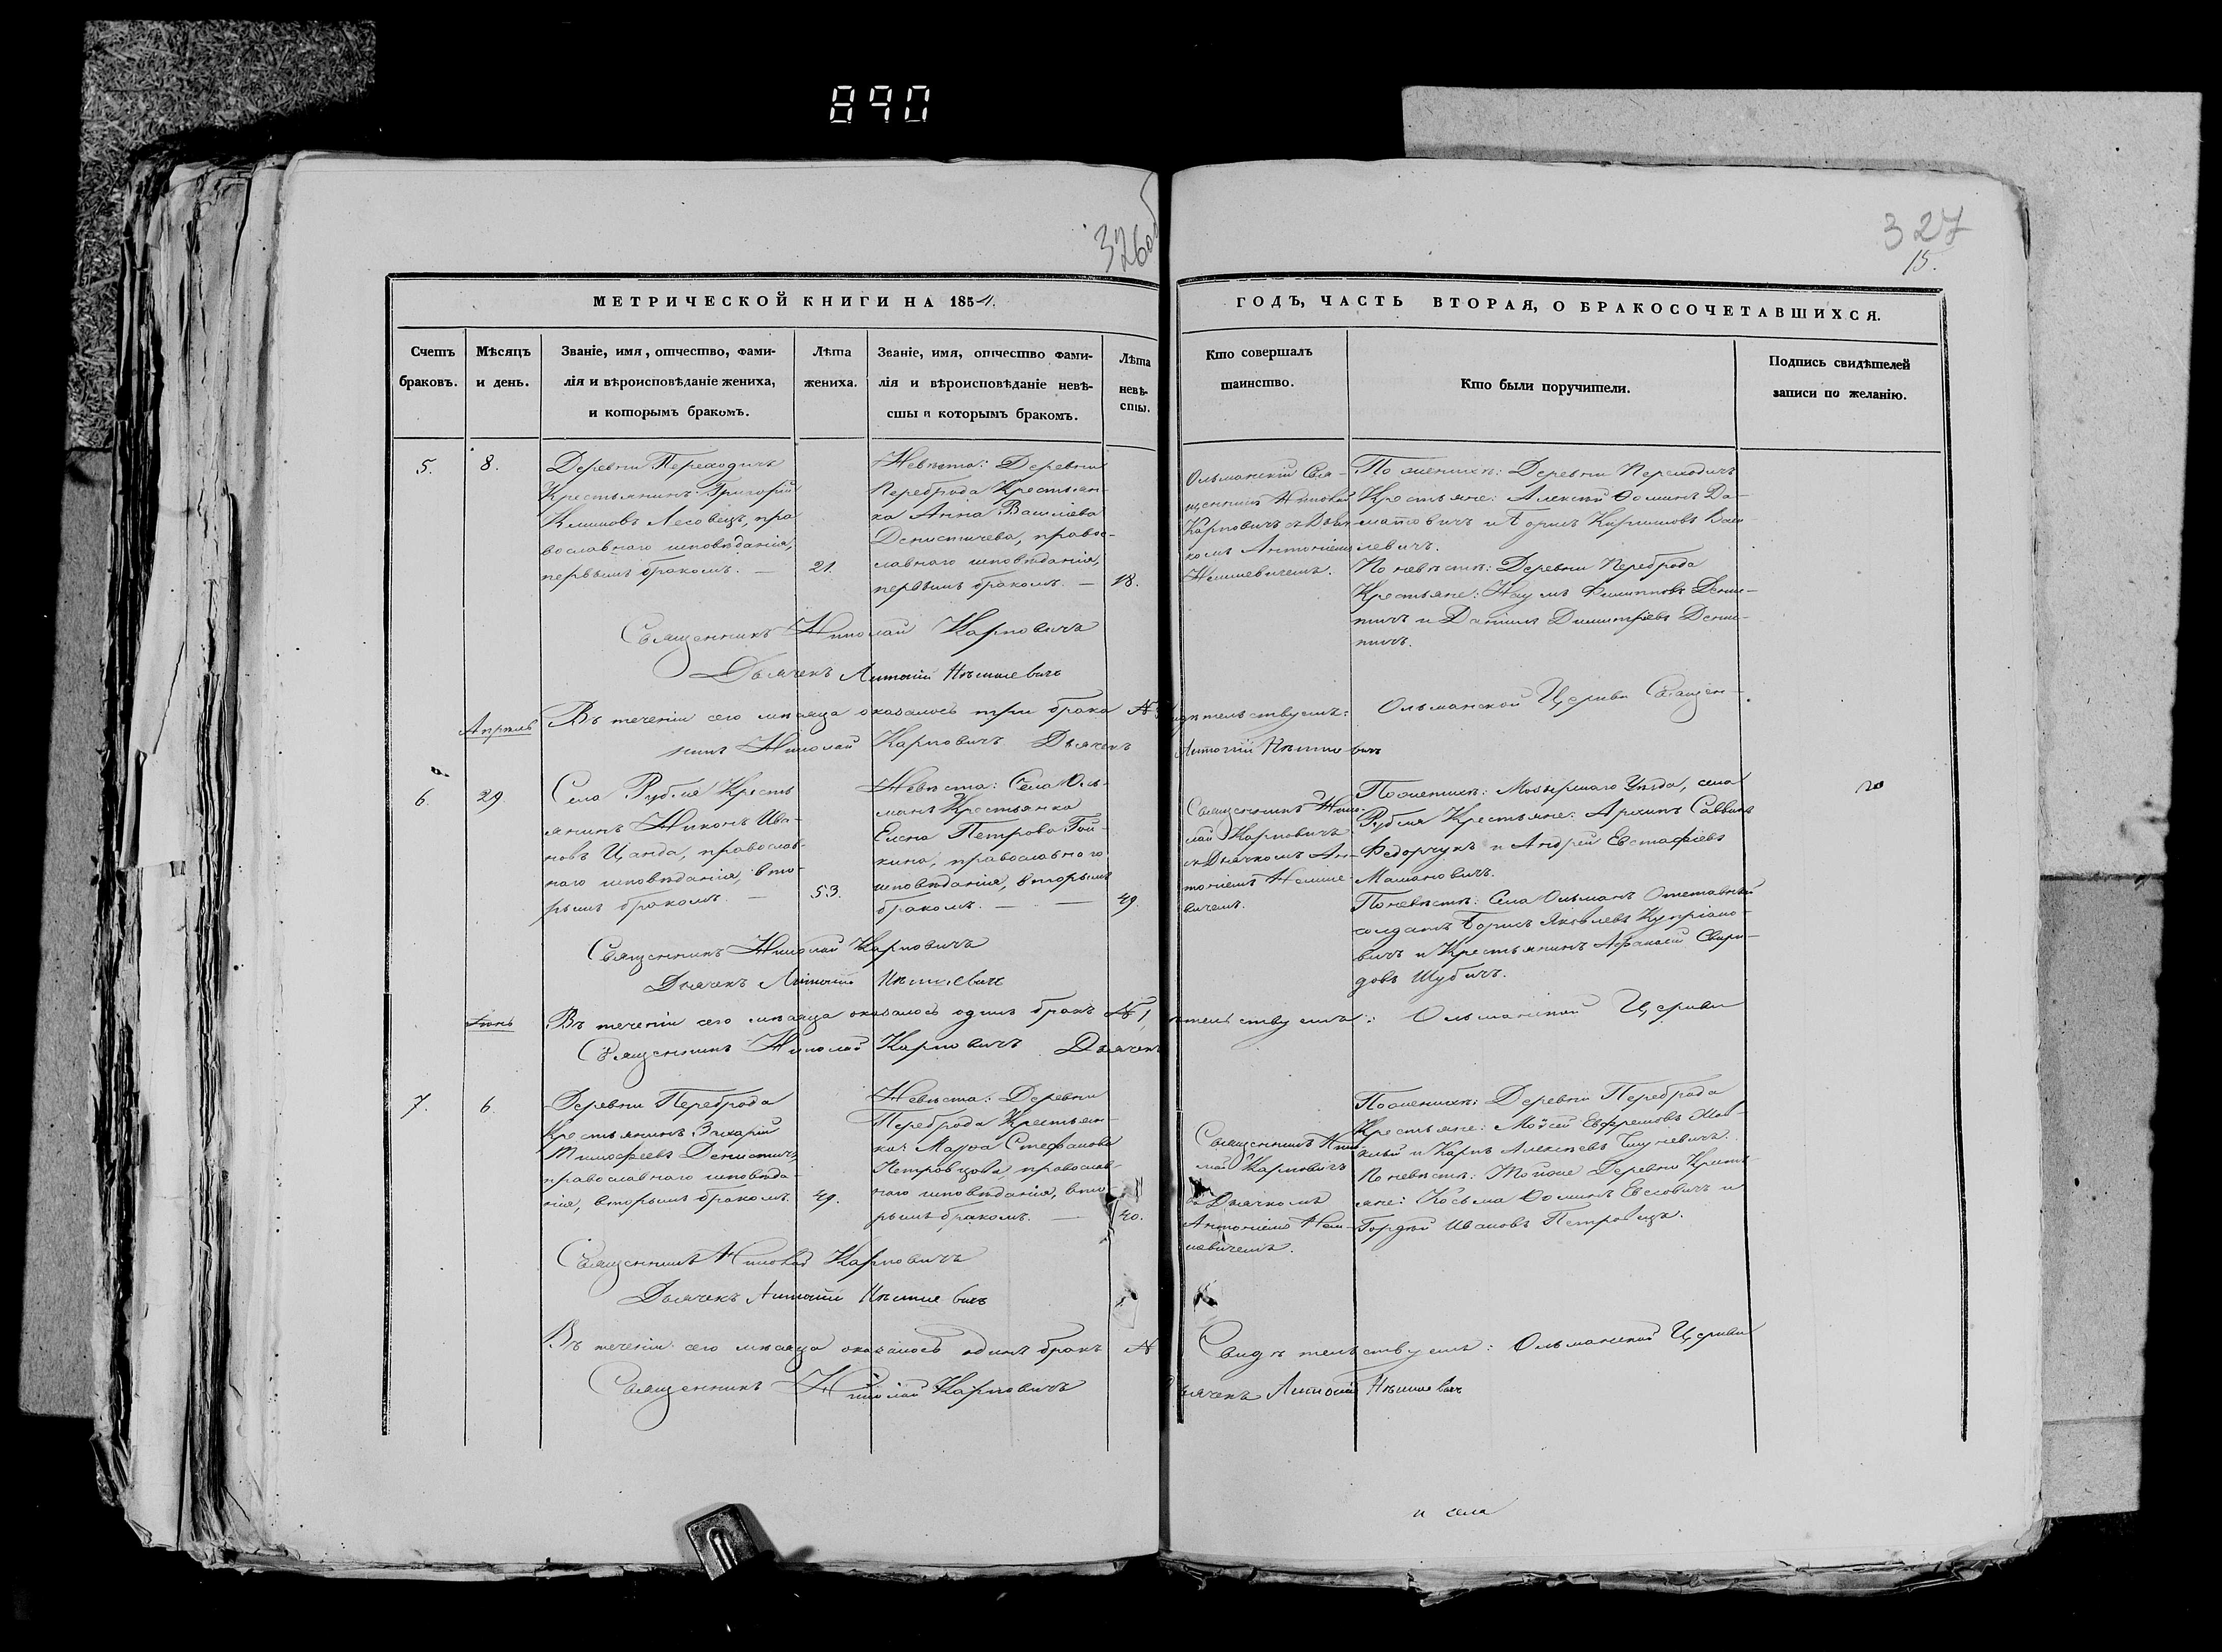 890
326об
327
15.
МЕТРИЧЕСКОЙ КНИГИ НА 1854.
ГОДЪ, ЧАСТЬ ВТОРАЯ, О БРАКОСОЧЕТАВШИХСЯ.
Счетъ
браковъ.
Мѣсяцъ
и день.
Званіе, имя, отчество, фами-
лія и вѣроисповѣданіе жениха,
и которымъ бракомъ.
Лѣта
жениха.
Званіе, имя, отчество фами-
лія и вѣроисповѣданіе невѣ-
сты и которымъ бракомъ.
Лѣта
невѣ-
сты.
Кто совершалъ
таинство.
Кто были поручители.
Подпись свидѣтелей
записи по желанію.
5.
8.
Деревни Переходичъ
Крестьянинъ Григорій
Климовъ Лесовецъ, пра
вославнаго исповѣданія,
первымъ бракомъ. —
21.
Невѣста: Деревни
Переброда Крестьян-
ка Анна Васильева
Денисичева, правос-
лавнаго исповѣданія,
первымъ бракомъ. —
18.
Ольманскій Свя-
щенникъ Николай
Карповичъ съ Дьяч-
комъ Антоніемъ
Немшевичемъ.
По женихѣ: Деревни Переходичъ
Крестьяне: Алексѣй Ѳоминъ До-
матовичъ и Борисъ Кирилловъ Васи
левичъ.
По невѣстѣ: Деревни Переброда
Крестьяне: Наумъ Филипповъ Дени-
тичъ и Даніилъ Димитріевъ Дени-
тичъ.
Священникъ Николай Карповичъ
Дьячекъ Антоній Нѣмшевичъ
Въ теченіи сего мѣсяца оказалось три брака №
дѣтельствуемъ: Ольманской Церкви Священ-
никъ Николай Карповичъ Дьячекъ
Антоній Нѣмшевичъ
Апрѣль
6.
29.
Села Рубля Кресть
янинъ Никонъ Ива-
новъ Цанда, православ-
наго исповѣданія, вто-
рымъ бракомъ. —
53.
Невѣста: Села Оль-
манъ Крестьянка
Елена Петрова Гой-
кина, православного
исповѣданія, вторымъ
бракомъ. — —
49.
Священникъ Нико-
лай Карповичъ
съ Дьячкомъ Ан-
тоніемъ Немше-
вичемъ.
По женихѣ: Мозырскаго Уѣзда, села
Рубля Крестьяне: Архипъ Саввинъ
Федорчукъ и Андрей Евстафіевъ
Мамановичъ.
По невѣстѣ: Села Ольманъ Отставный
солдатъ Борисъ Яковлевъ Купріано-
вичъ и Крестьянинъ Афанасій Свири-
довъ Шубичъ.
Священникъ Николай Карповичъ
Дьячекъ Антоній Нѣмшевичъ
Въ теченіи сего мѣсяца оказалось одинъ бракъ № 1,
тельствуемъ: Ольманской Церкви
Священникъ Николай Карповичъ Дьячекъ
Іюнь
7.
6.
Деревни Переброда
Крестьянинъ Захарій
Тимофеевъ Денисичъ,
православнаго исповѣда-
нія, вторымъ бракомъ.
49.
Невѣста: Деревни
Переброда Крестьян-
ка: Марѳа Стефанова
Петровцова, православ-
наго исповѣданія, вто-
рымъ бракомъ. —
40.
Священникъ Нико
лай Карповичъ
съ Дьячкомъ
Антоніемъ Нем-
шевичемъ.
По женихѣ: Деревни Переброда
Крестьяне: Мойсей Ефремовъ
и Карпъ Алексѣевъ
По невѣстѣ: Тойже Деревни Кресть
яне: Косьма Ѳоминъ Евсовичъ и
Гордѣй Ивановъ Петровецъ.
Священникъ Николай Карповичъ
Дьячекъ Антоній Нѣмшевичъ
Въ теченіи сего мѣсяца оказалось одинъ бракъ №
Свидѣтельствуемъ: Ольманской Церкви
Священникъ Николай Карповичъ
Дьячекъ Антоній Нѣмшевичъ
и села